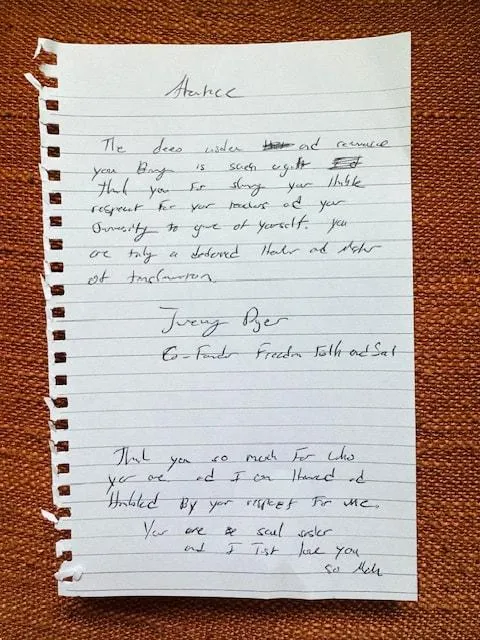 The deep wisdom and
you Bring is such a gift
Thank you For sharing your Humble
respect For your teachers and your
Generosity to give of yourself. you
are truly a Healer and Master
of
Jeremy Dyer
Co-Founder Freedom Folk and Soul
Thank you so much For who
you are. and I am Honored and
Humbled By your respect For me.
You are a soul sister
and I Just love you
so Much